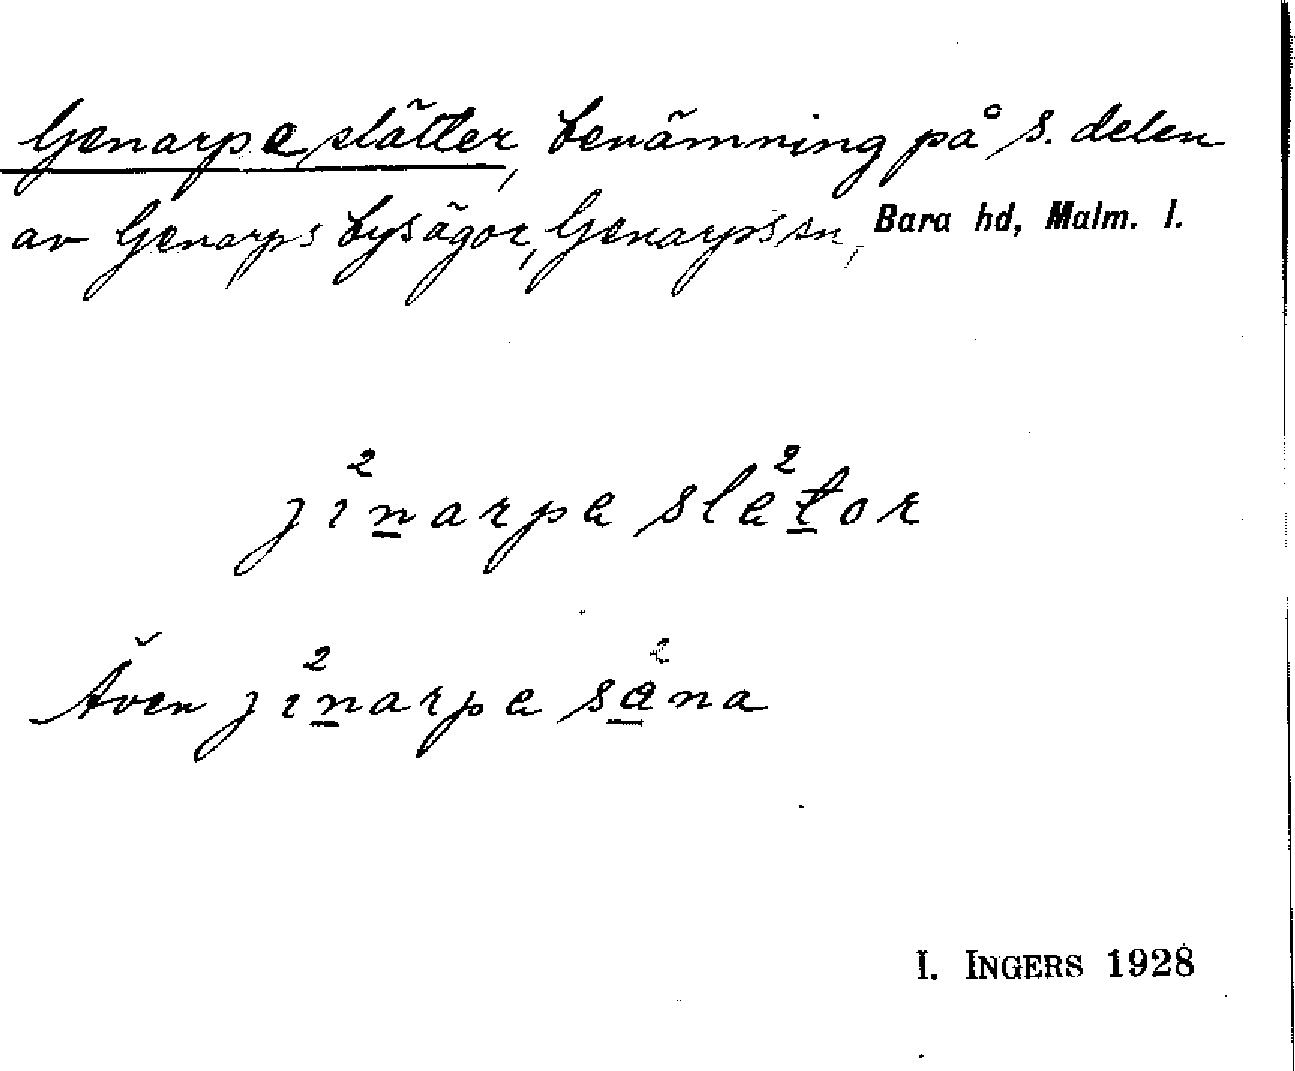 Genarpa slätter, benämning på s. delen
av Genarps bys ägor, Genarps sn, Bara hd, Malm. l.
jı²narpa sla²tor
Även jı²narpa sa²na
I. INGERS 1928